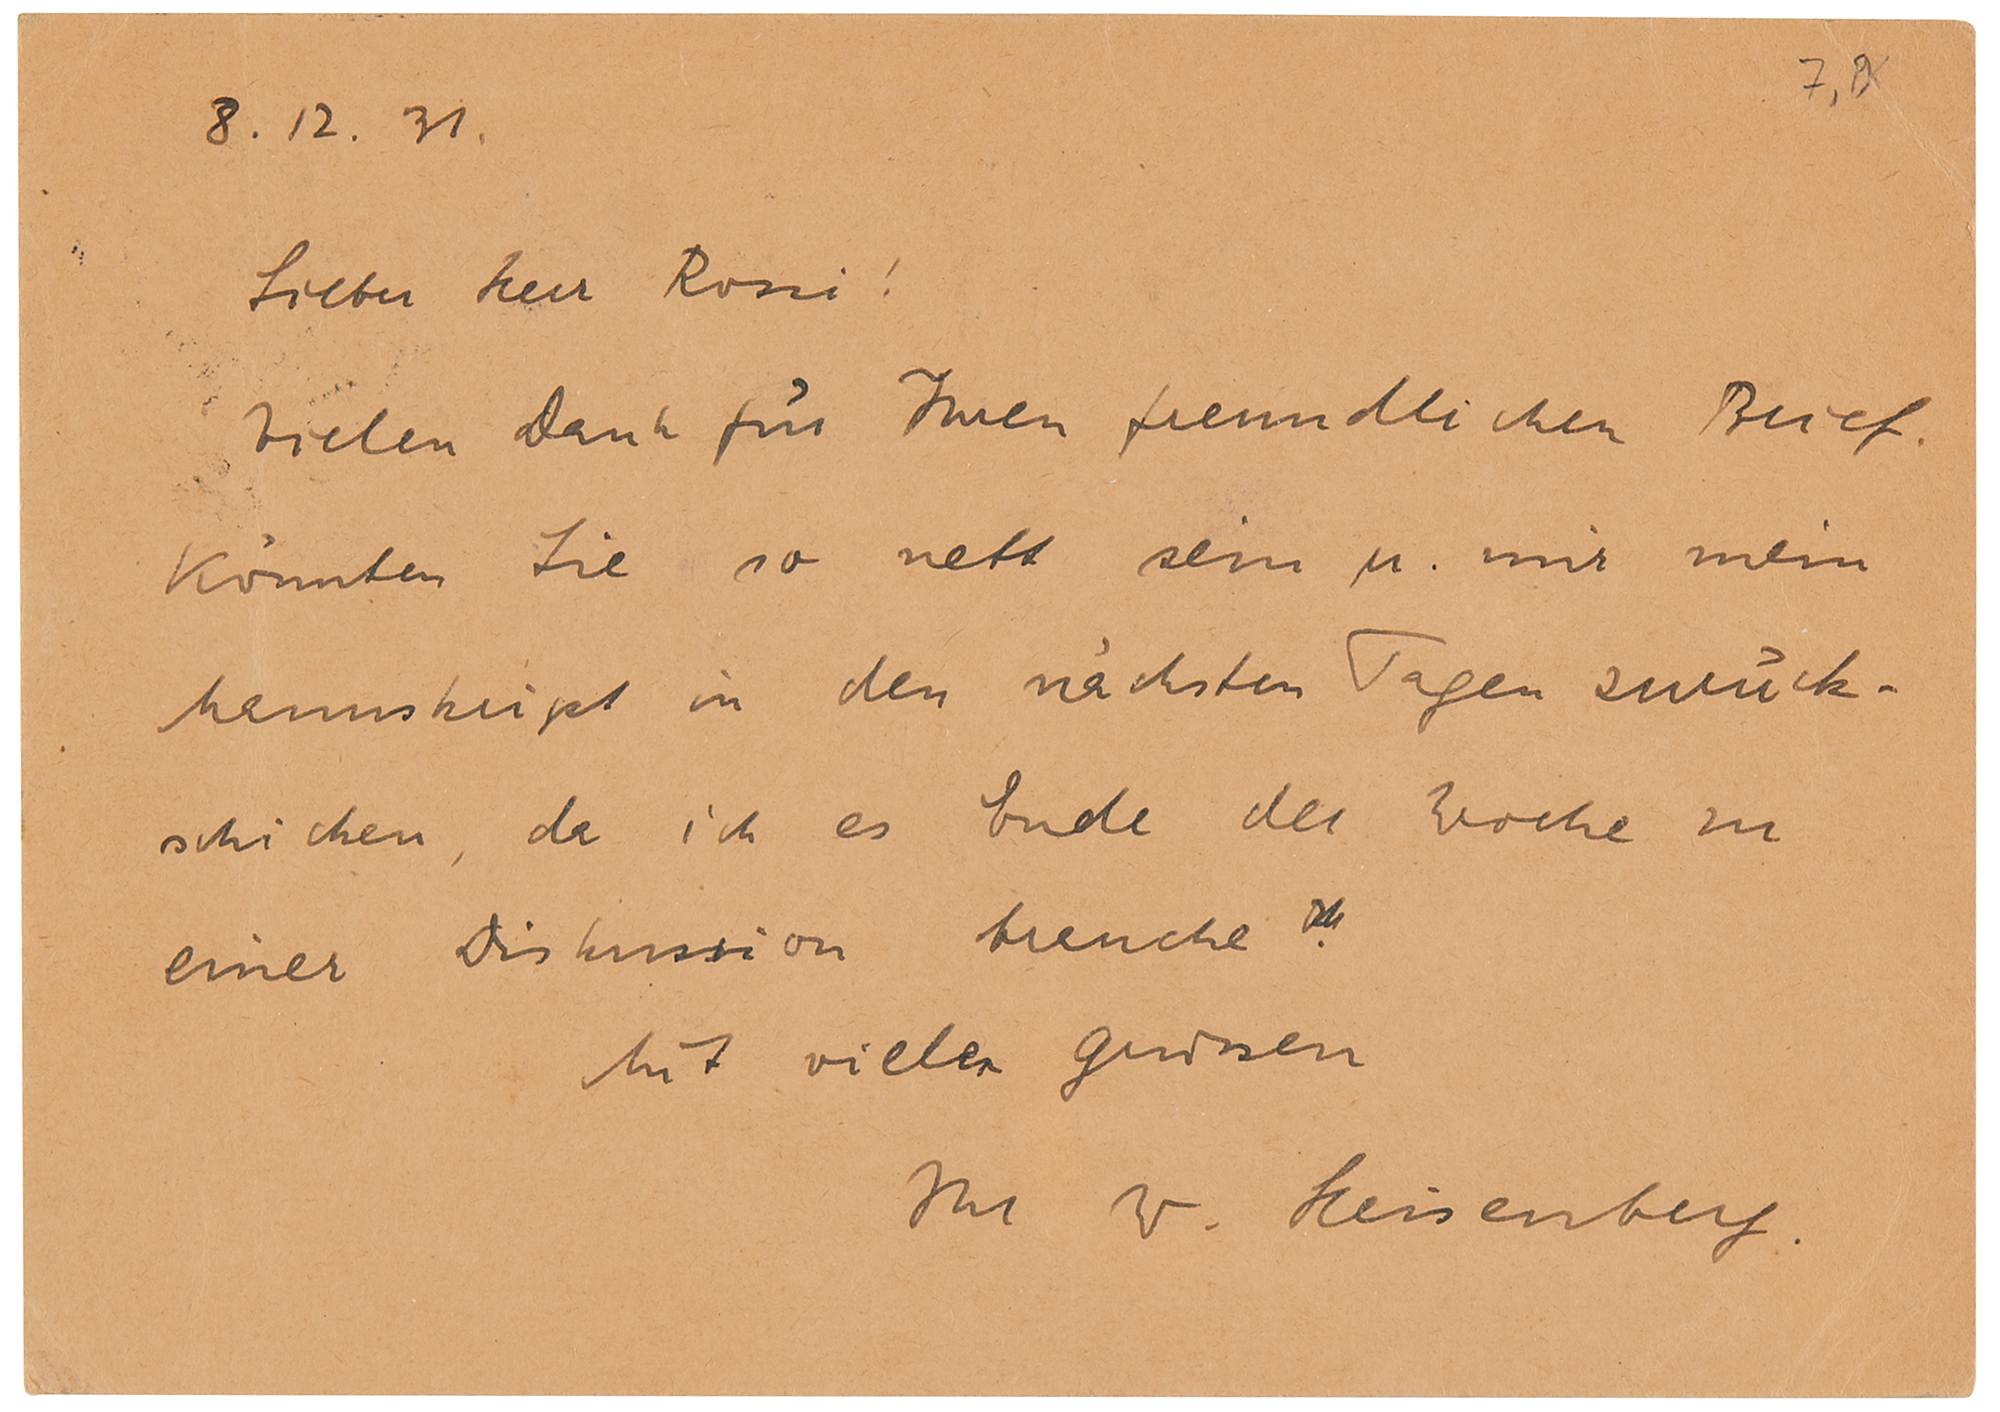 8. 12. 31.
Lieber Herr Rossi!
Vielen Dank für Ihren freundlichen Brief.
Könnten Sie so nett sein u. mir mein
Manuskript in den nächsten Tagen zurück-
schicken, da ich es Ende der Woche zu
einer Diskussion brauche?
Mit vielen Grüssen
Ihr W. Heisenberg.